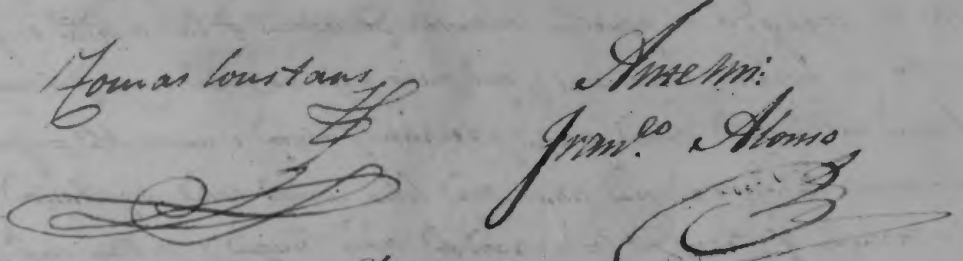 Tomas Constans
Ante mi:
Fran.co Alonso